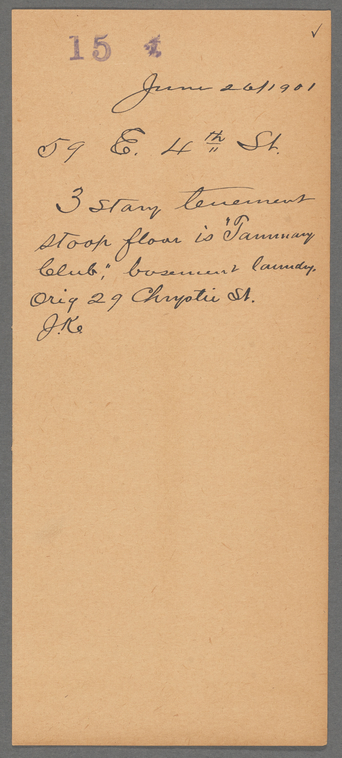 15
✓
June 26/1901
59 E. 4th St.
3 story tenement
stoop floor is "Tammany
Club," basement laundry.
Orig 29 Chrystie St.
J.K.